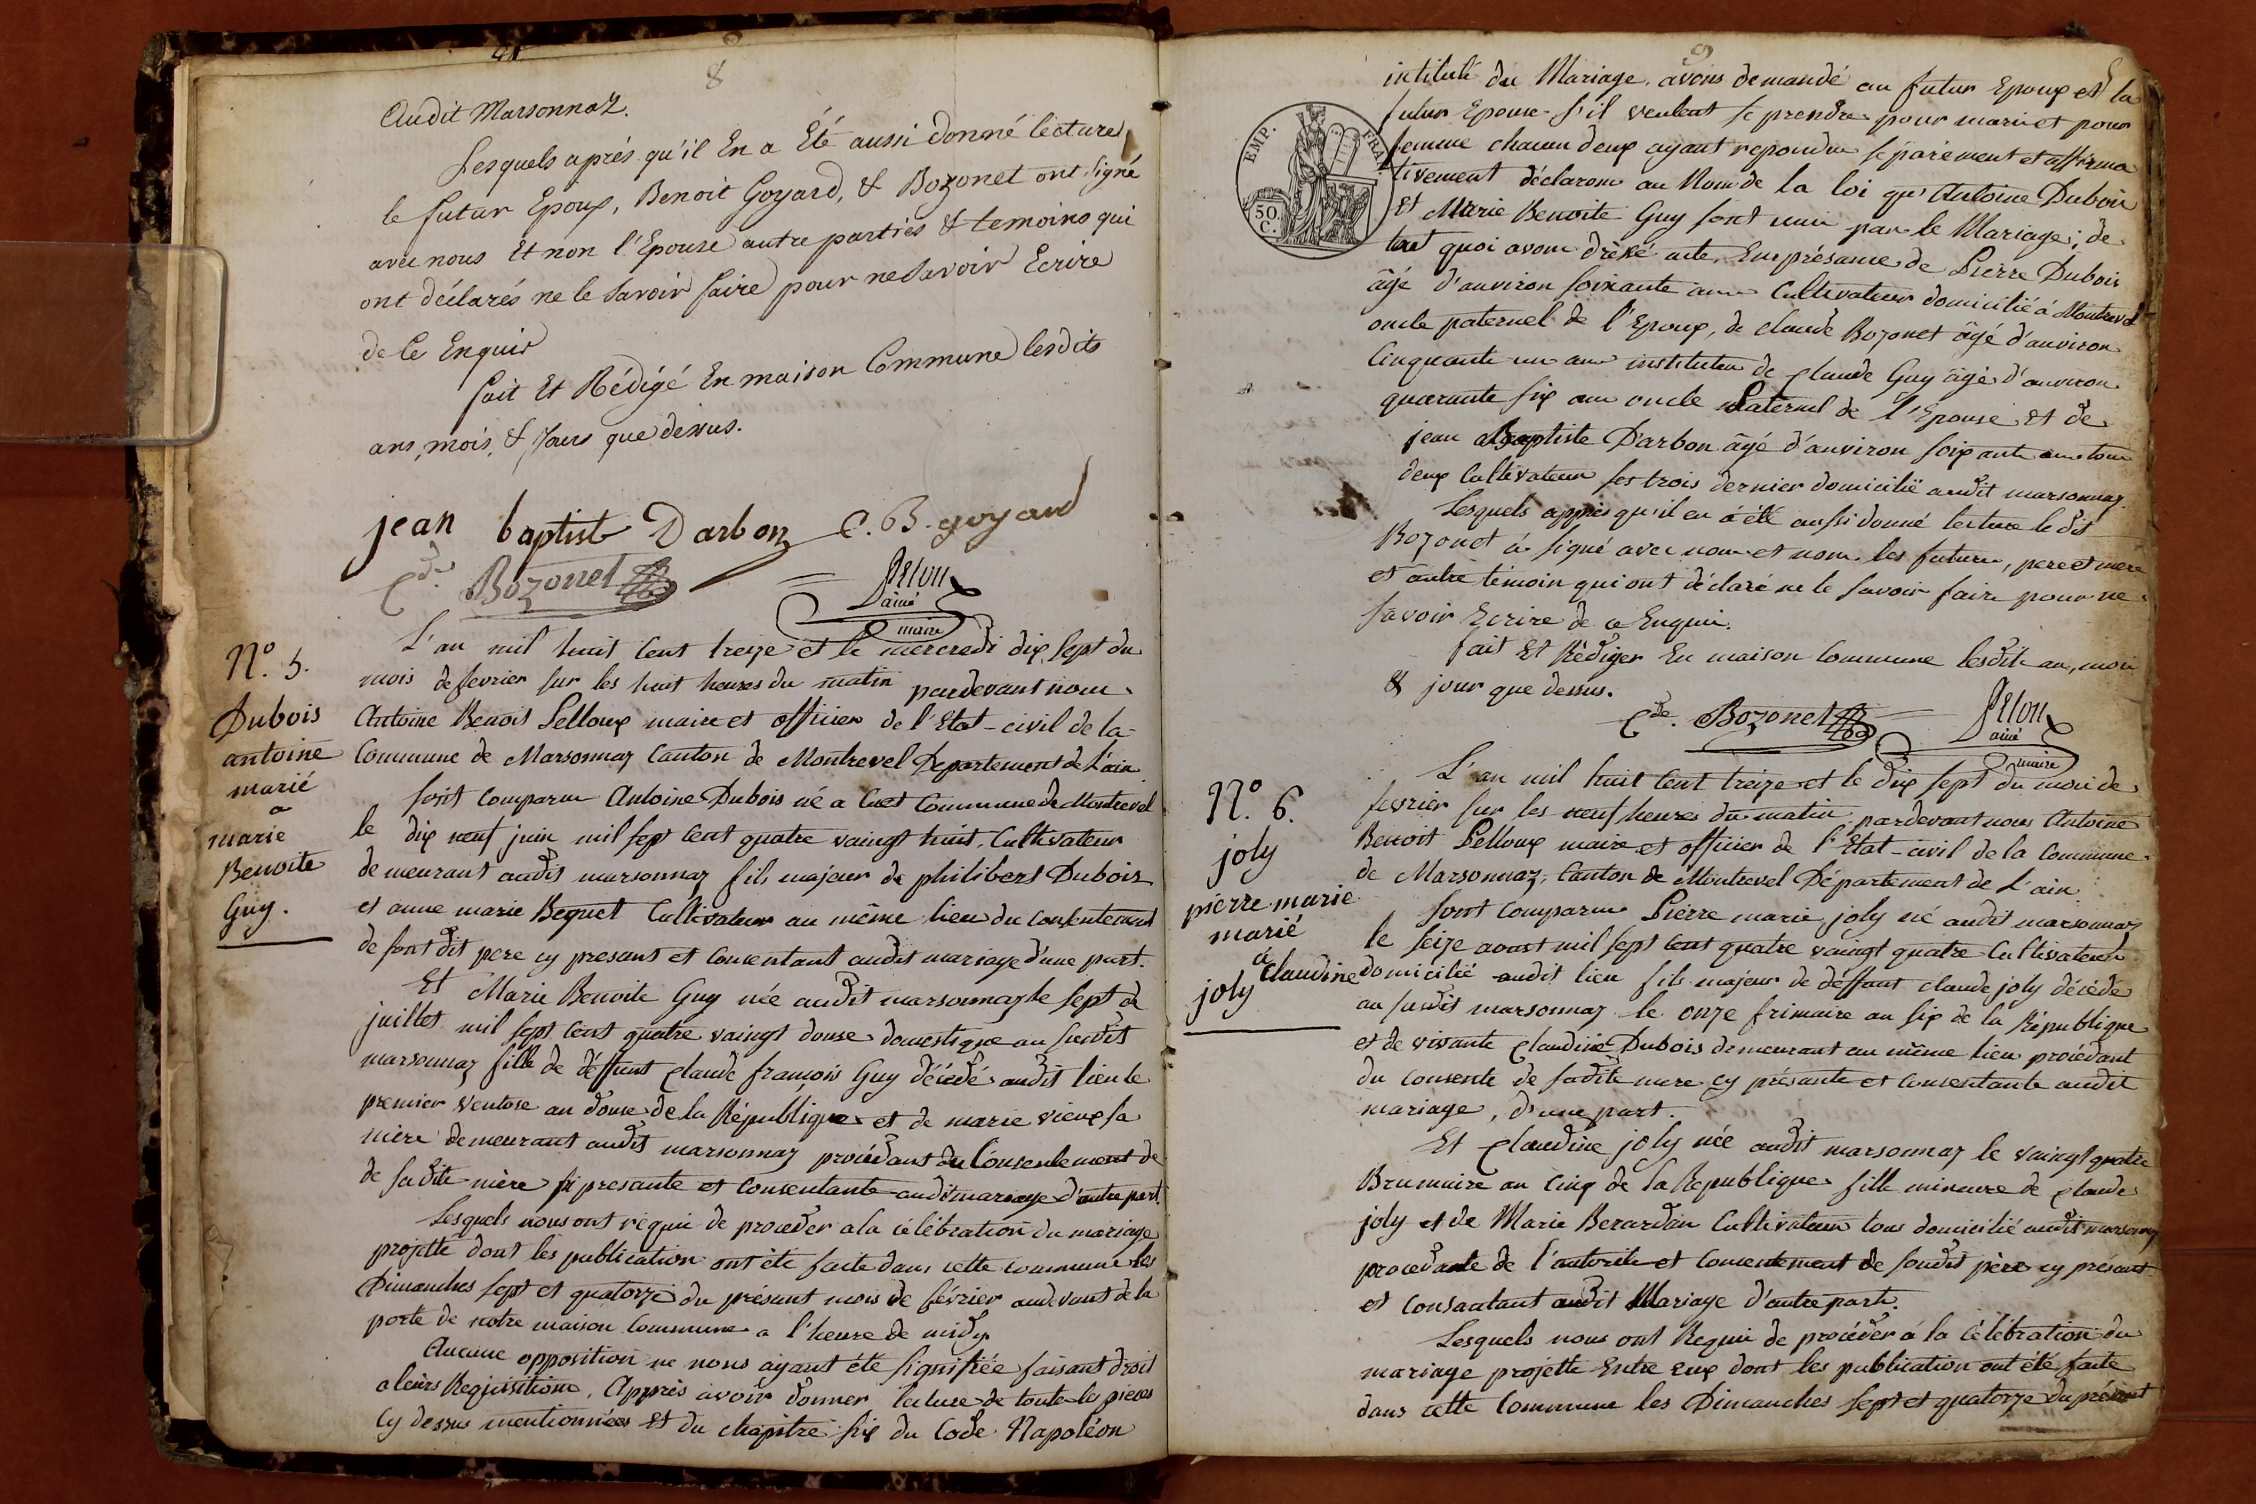 8
Audit Marsonnaz.
Lesquels aprés qu'il En a Eté aussi donné lecture,
le futur Epoux, Benoit Goyard, & Bozonet ont signé
avec nous Et non l'Epouse autre parties & temoins qui
ont déclarés ne le savoir faire pour ne savoir Ecrire
de Ce Enquis
fait Et Rédigé En maison Commune lesdits
ans, mois, & Jours que dessus.
jean baptist Darbon C. B. goyard
Cde. Bozonet
ainé
maire
N.º 5.
Dubois
antoine
marié
a
marie
Benoite
Guy.
L'an mil huit Cent treize et le mercredi dix sept du
mois de fevrier sur les huit heures du matin pardevant nous
Antoine Benoit Pelloux maire et officier de l'Etat-civil de la
Commune de Marsonnaz Canton de Montrevel Departement de L'ain
sont comparus Antoine Dubois né a Commune de Montrevel
le dix neuf juin mil sept cent quatre vaingt huit, Cultivateur
demeurant audit marsonnaz fils majeur de philibert Dubois
et anne marie Bequet Cultivateur au même lieu du consentement
de sont dit pere cy presant et consentant audit mariage d'une part.
Et Marie Benoite Guy née audit marsonnaz le sept de
juillet mil sept cent quatre vaingt douse domestique au susdit
marsonnaz fille de déffunt Claude françois Guy décédé audit lieu le
premier ventose an douse de la République et de marie vieux sa
mère demeurant audit marsonnaz procédant du Consentement de
de sa dite mère si presante et consentante audit mariage d'autre part.
Lesquels nous ont réquis de proceder a la célébration du mariage
projetté dont les publication ont été faite dans cette commune les
Dimanches sept et quatorze du présant mois de février audevant de la
porte de notre maison Commune a l'heure de midy.
Aucune opposition ne nous ayant été signifiée faisant droit
a leurs Requisition, Apprès avoir donner lecture de toute les pieces
Cy dessus mentionnées Et du chapitre six du Code Napoléon
9
intitulé du Mariage, avons demandé au futur Epoux et la
futur Epouse s'il veulent se prendre pour mari et pour
femme chacun deux ayant repondu séparément et affirma
tivement déclarons au Nom de la loi qu'Antoine Dubois
Et Marie Benoite Guy sont unis par le Mariage; de
tout quoi avons drèssé acte, En présance de Pierre Dubois
âgé d'anviron soixante ans Cultivateur domicilié á Montrevel
oncle paternel de l'Epoux, de Claude Bozonet âgé d'anviron
Cinquante un ans instituteur de Claude Guy âgé d'anviron
quarante six ans oncle Paternel de l'Epouse et de
jean Baptiste D'arbon âgé d'anviron soixante ans tous
deux Cultivateur les trois dernier domicilié audit marsonnaz.
Lesquels apprès qu'il en á été aussi donné lecture le dit
Bozonet á signé avec nous et nom les future, pere et mere
et autre témoin qui ont déclaré ne le savoir faire pour ne
savoir Ecrire de ce Enquis.
fait Et Rédiger En maison Commune lesdits an, mois
& jour que dessus.
EMP. FRA.
50.
C.
Cde. Bozonet
ainé
maire
N.º 6.
joly
pierre marie
marié
á
Claudine
joly
L'an mil huit Cent treize et le dix sept du mois de
fevrier sur les neuf heures du matin, pardevant nous Antoine
Benoit Pelloux maire et officier de l'Etat-civil de la Commune
de Marsonnaz, Canton de Montrevel Département de L'ain
Sont Comparus Pierre marie joly né audit marsonnaz
le seize aoust mil sept cent quatre vaingt quatre Cultivateur
domicilié audit lieu fils majeur de déffunt claude joly décédé
au susdit marsonnaz le onze frimaire an six de la République
et de vivante Claudine Dubois demeurant au même lieu procédant
du consente de sadite mere cy présante et consentante audit
mariage, d'une part.
Et Claudine joly née audit marsonnaz le vaingt quatre
Brumaire an Cinq de la Republique fille mineure de Claude
joly et de Marie Berardan Cultivateur tous domicilié audit marsonnaz
procedante de l'autorité et Consentement de sondit père cy présant
et Consantant audit Mariage d'autre part.
Lesquels nous ont Requis de procéder á la célébration du
mariage projetté Entre eux dont les publication ont été faite
dans cette Commune les Dimanches sept et quatorze du présent